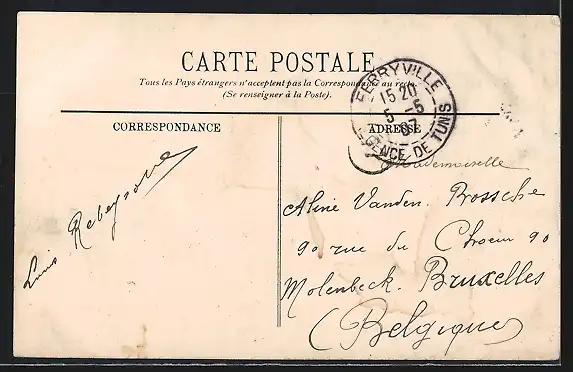 CARTE POSTALE
Tous les Pays étrangers n'acceptent pas la Correspondance au recto
(Se renseigner à la Poste).
FERRYVILLE
15 20
5 -5
07
REGENCE DE TUNIS
CORRESPONDANCE
ADRESSE
Mademoiselle
Aline Vanden. Brossche
90 rue du Choeur 90
Molenbeck. Bruxelles
(Belgique)
Louis Rebeyrolle